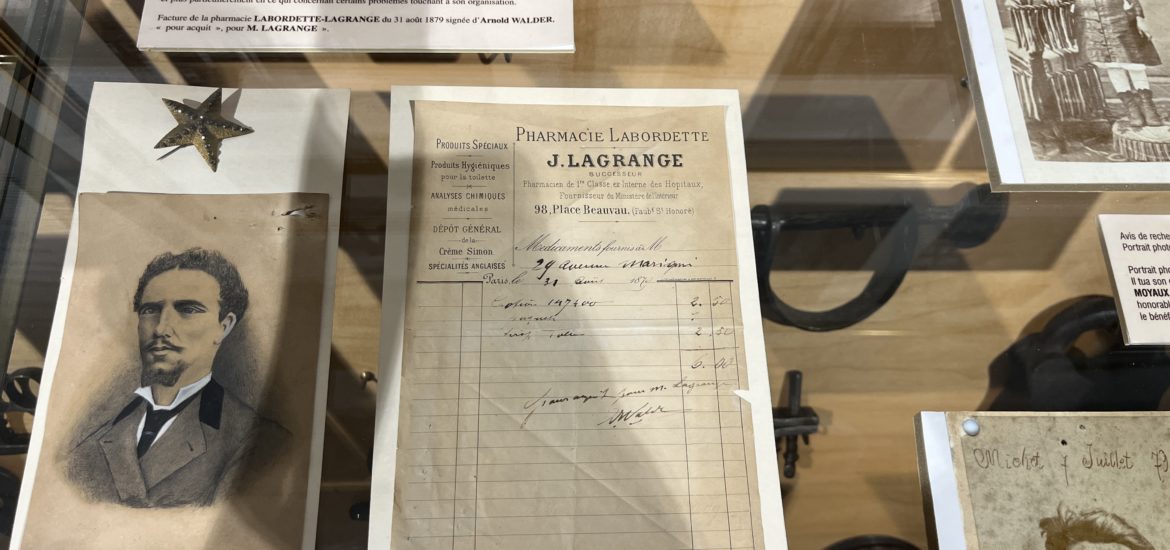 et plus particulièrement en ce qui concernait certains problèmes touchant à son organisation.
Facture de la pharmacie LABORDETTE-LAGRANGE du 31 août 1879 signée d'Arnold WALDER.
« pour acquit », pour M. LAGRANGE ».
PRODUITS SPÉCIAUX
Produits Hygiéniques
pour la toilette
ANALYSES CHIMIQUES
médicales
DÉPÔT GÉNÉRAL
de la
Crème Simon
SPÉCIALITÉS ANGLAISES
PHARMACIE LABORDETTE
J. LAGRANGE
SUCCESSEUR
Pharmacien de 1re Classe ex Interne des Hôpitaux,
Fournisseur du Ministère de l'Intérieur
98, Place Beauvau. (Faubg St Honoré)
Médicaments fournis à M
29 avenue Marigni
Paris, le 31 187
147400 2. 50
2. 50
6. 00
pour m. Lagrange
Walder
Avis de reche
Portrait photo
Portrait pho
Il tua son
MOYAUX
honorabl
le bénéf
Michel 7 Juillet 79